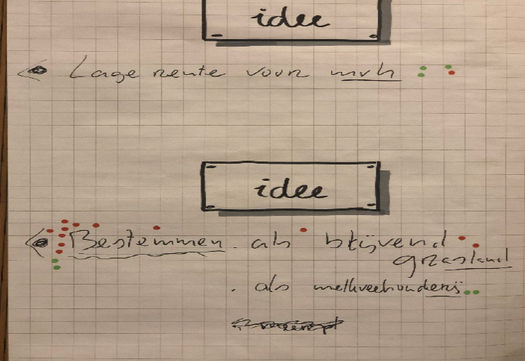 idee
Lage rente voor mvh
idee
Bestemmen . als blijvend
grasland
. als melkveehouderij